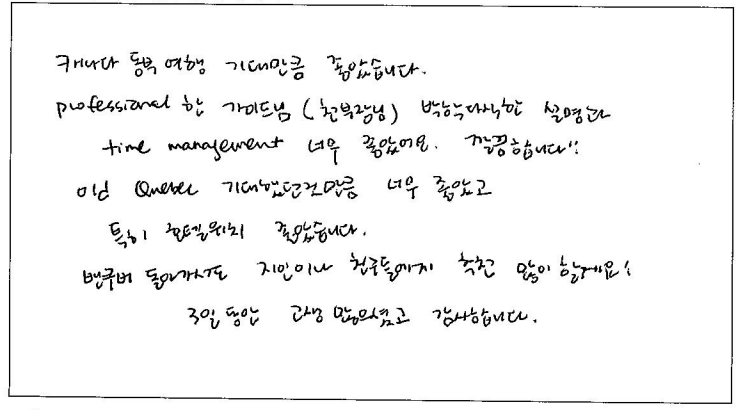 캐나다 동부 여행 기대만큼 좋았습니다.
professional 한 가이드님 (천부장님) 박학다식한 설명과
time management 너무 좋았어요. 깔끔합니다!!
old Quebec 기대했던것만큼 너무 좋았고
특히 호텔위치 좋았습니다.
밴쿠버 돌아가서도 지인이나 친구들에게 추천 많이 할게요!
3일 동안 고생 많으셨고 감사합니다.